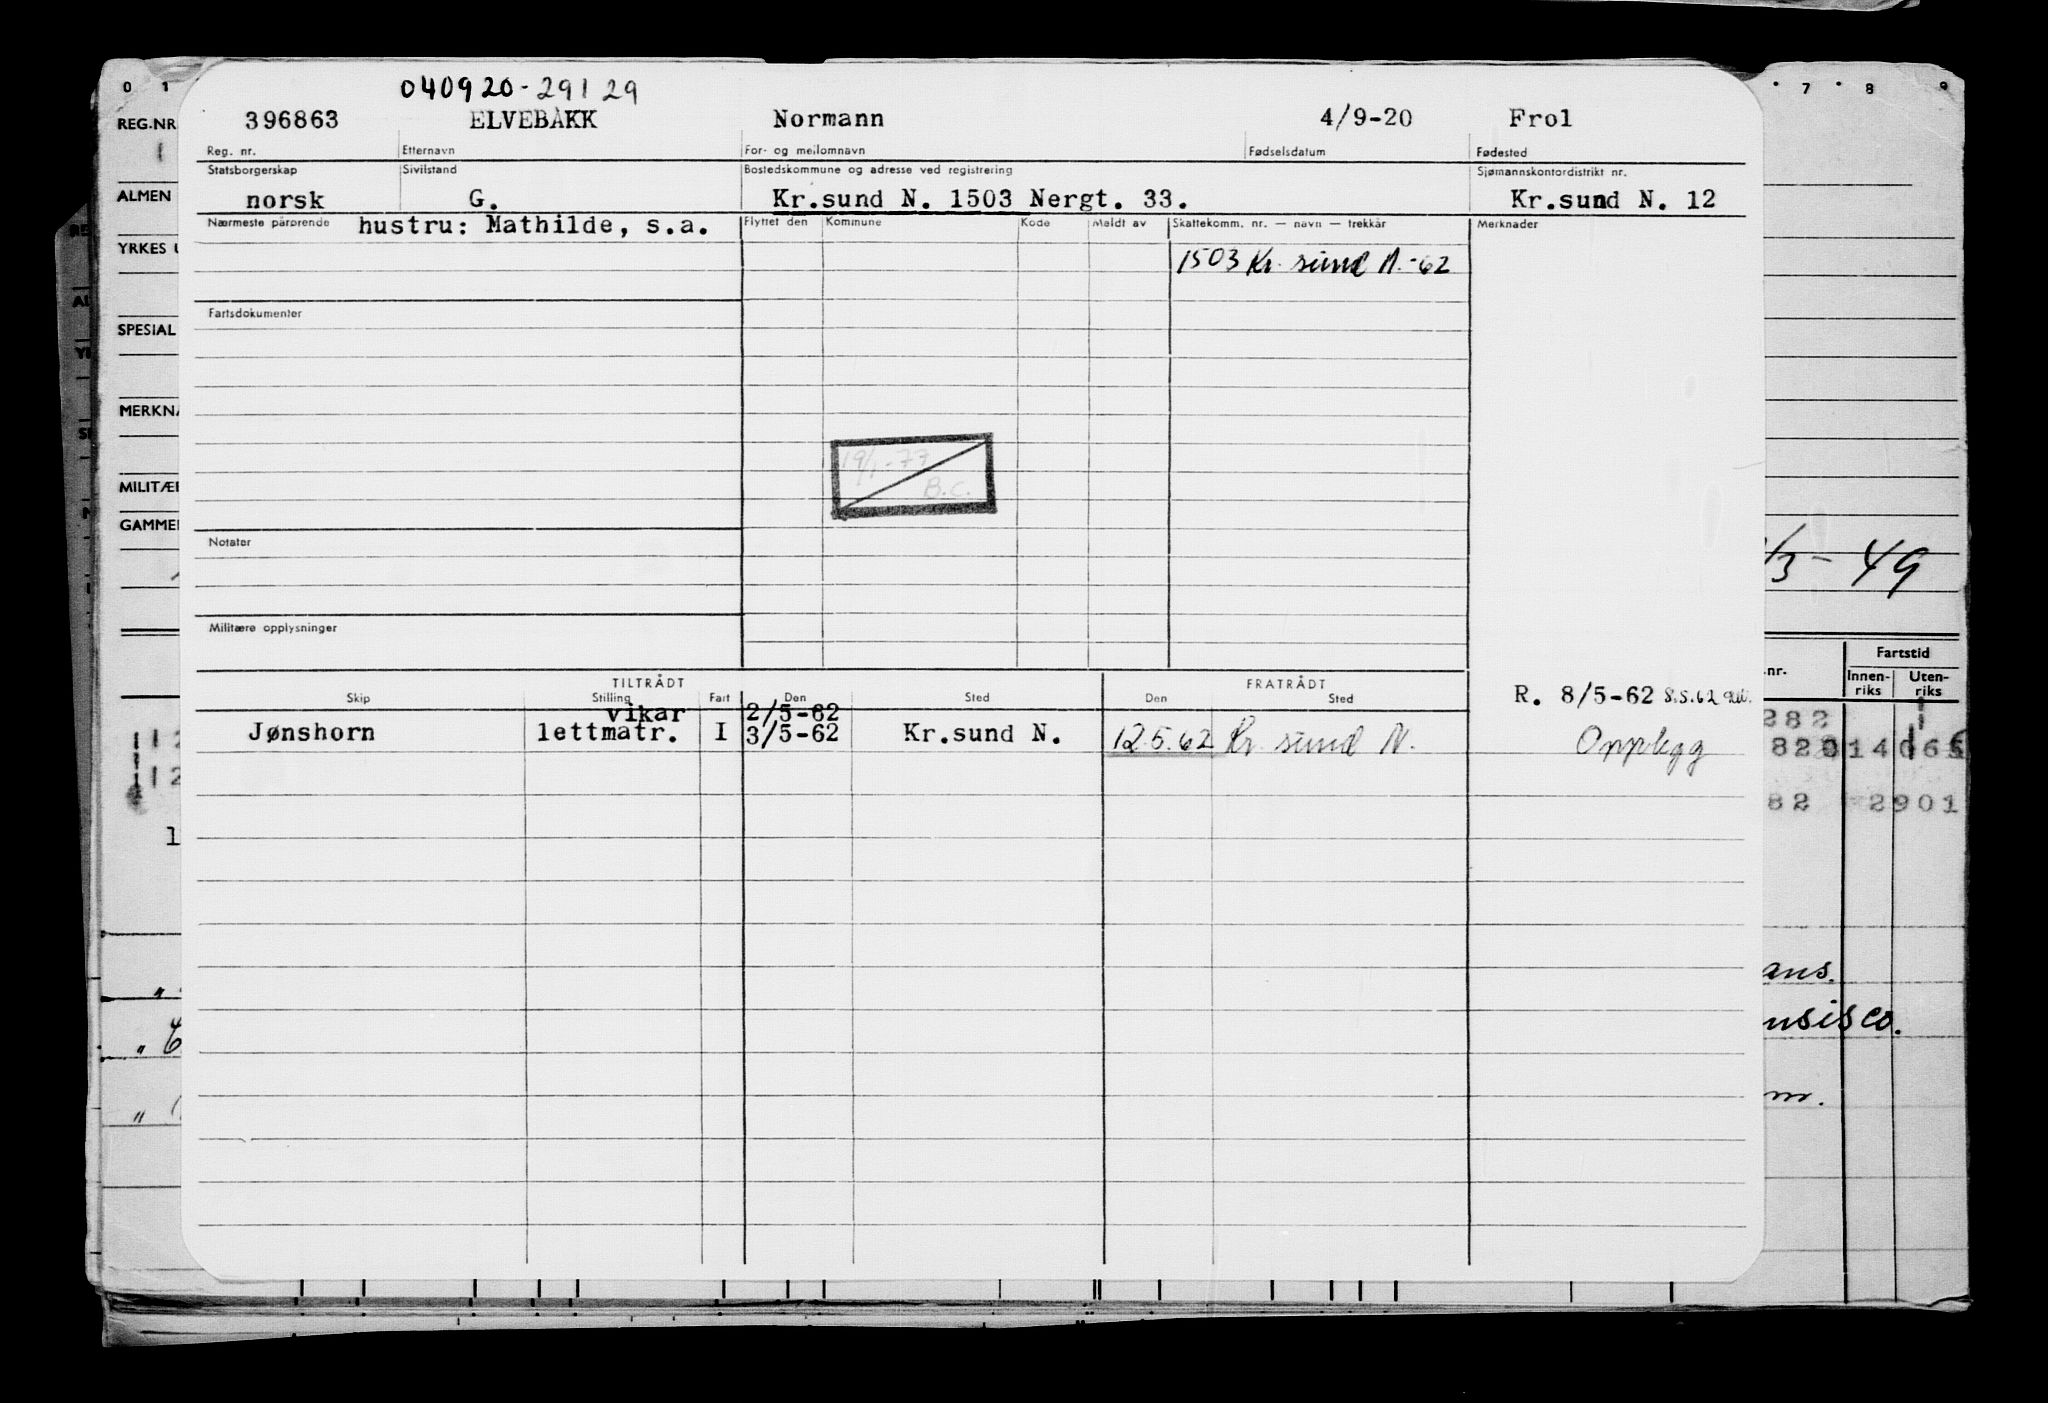 040920-29129
396863 ELVEBAKK Normann 4/9-20 Frol
Reg. nr. Etternavn For- og mellomnavn Fødselsdatum Fødested
Statsborgerskap Sivilstand Bostedskommune og adresse ved registrering Sjømannskontordistrikt nr.
norsk G. Kr.sund N. 1503 Nergt. 33. Kr.sund N. 12
Nærmeste pårørende hustru: Mathilde, s.a. Flyttet den Kommune Kode Meldt av Skattekomm. nr. — navn — trekkår Merknader
1503 Kr. sund N.-62
Fartsdokumenter
19/1-77
B.C.
Notater
Militære opplysninger
TILTRÅDT FRATRÅDT
Skip Stilling Fart Den Sted Den Sted
R. 8/5-62 8.5.62
vikar 2/5-62
Jønshorn lettmatr. I 3/5-62 Kr.sund N. 12.5.62 Kr. sund N. Opplegg
0 1
REG.NR.
ALMEN
YRKES
SPESIAL
MERKNA
MILITÆR
GAMMEL
7 8 9
/3-49
.nr. Fartstid
Innen-riks Uten-riks
282
82014065
82 2901
ans.
nsisco.
m.